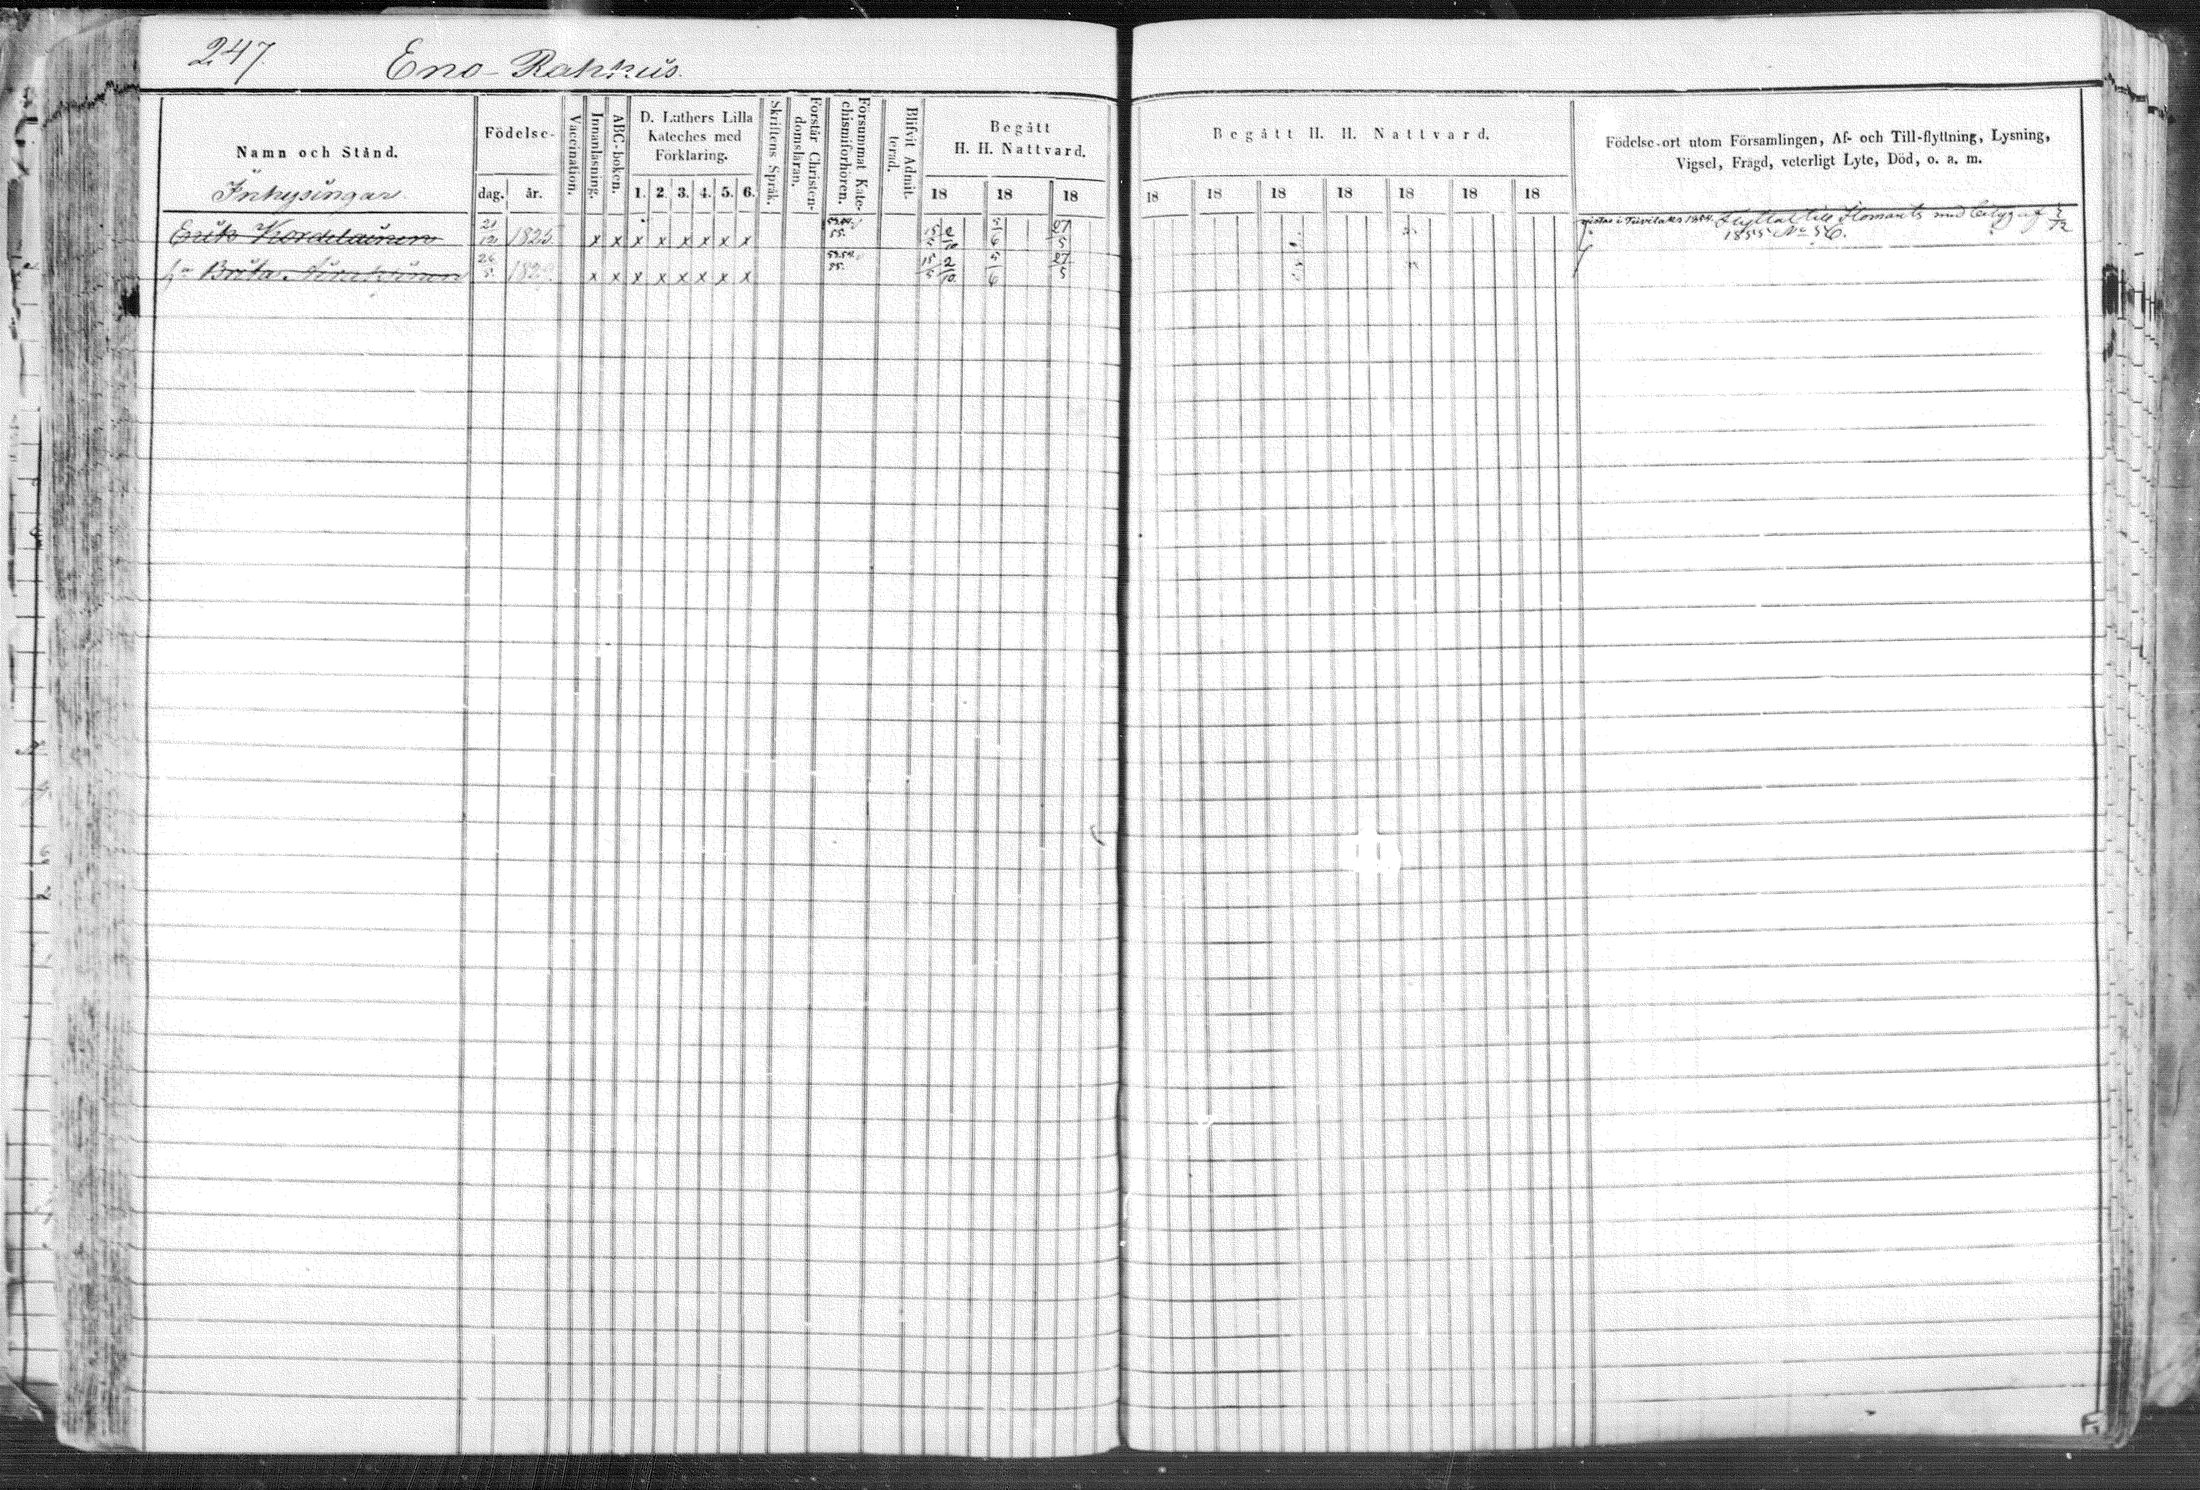 247 Eno Rahkus.
Namn och Stånd.
Födelse-
dag. år.
Vaccination.
Innanläsning.
ABC-boken.
D. Luthers Lilla
Kateches med
Förklaring.
1. 2. 3. 4. 5. 6.
Skriftens Språk.
Förstår Christen-
domsläran.
Försummat Kate-
chismiförhören.
Blifvit Admit-
terad.
Begått
H. H. Nattvard.
18 18 18
Begått H. H. Nattvard.
18 18 18 18 18 18 18
Födelse-ort utom Församlingen, Af- och Till-flyttning, Lysning,
Vigsel, Frägd, veterligt Lyte, Död, o. a. m.
Inhysingar
Erik 21/12 1825 x x x x x x x x 53.54. 55. 15/5 2/10 5/6 27/5 1854. flyttat till Ilomants med betyg af
1855 No 56.
Brita 26/5 x x x x x x x x 53.54. 55. 15/5 2/10 5/6 27/5